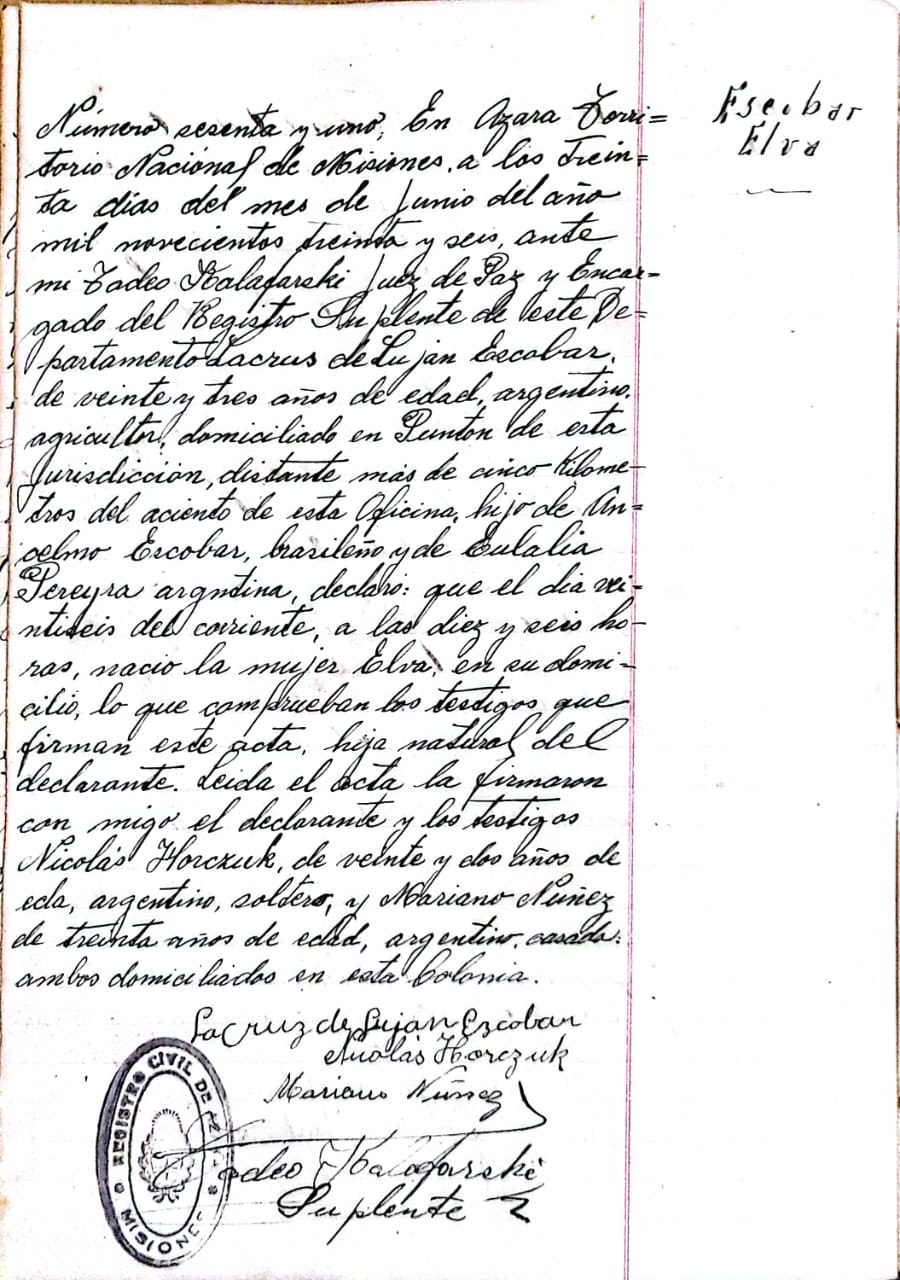 Escobar
Elva
Número sesenta y uno, En Azara Terri=
torio Nacional de Misiones, a los trein=
ta días del mes de Junio del año
mil novecientos treinta y seis, ante
mi Tadeo Kalafarski Juez de Paz y Encar=
gado del Registro Suplente de este De=
partamento Lacrus de Luján Escobar,
de veinte y tres años de edad, argentino,
agricultor, domiciliado en Puntón de esta
Jurisdicción, distante mas de cinco Kilome-
tros del aciento de esta Oficina, hijo de An=
celmo Escobar, brasileño y de Eulalia
Pereyra argntina, declaró: que el día vei-
ntiseis del corriente, a las diez y seis ho-
ras, nacio la mujer Elva, en su domi-
cilio, lo que comprueban los testigos que
firman este acta, hija natural del
declarante. Leida el acta la firmaron
con migo el declarante y los testigos
Nicolás Horczuk, de veinte y dos años de
eda, argentino, soltero, y Mariano Nuñez
de treinta años de edad, argentino, casado:
ambos domiciliados en esta Colonia.
LaCruz de Lujan Ezcobar
Nicolás Horczuk
Mariano Nuñez
Tadeo Kalafarski
Suplente
REGISTRO CIVIL DE AZARA
MISIONES